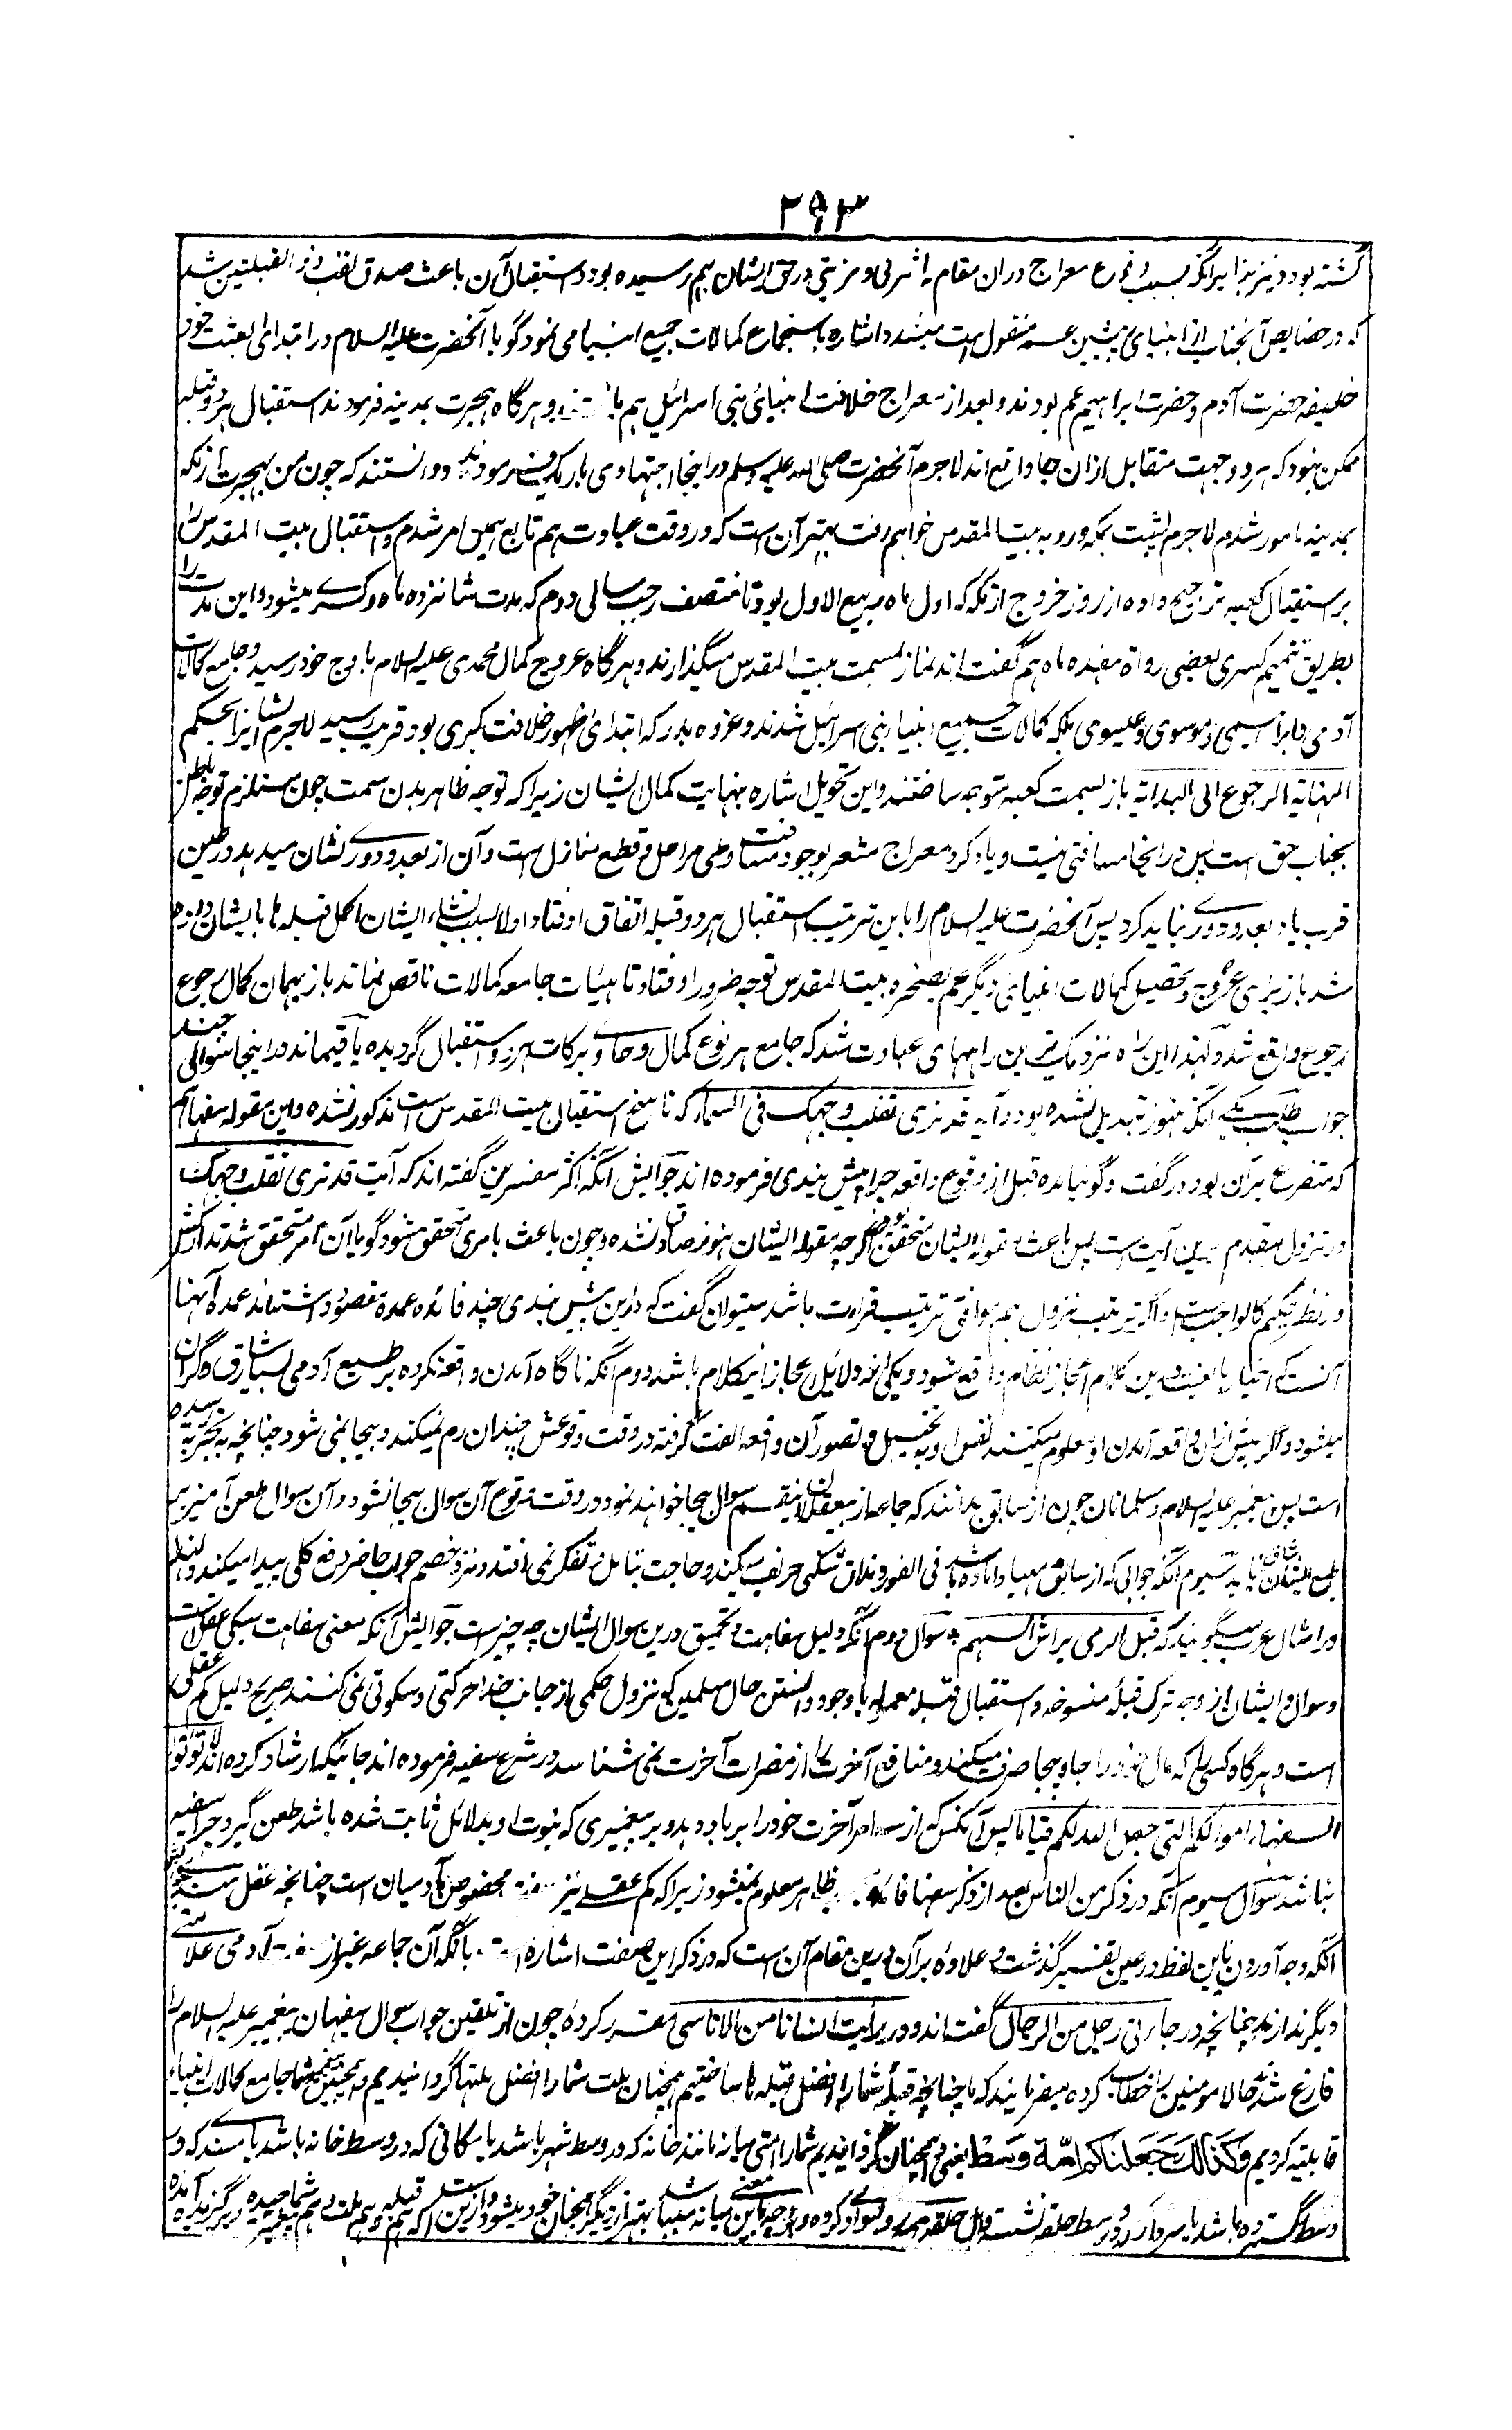 ۲۹۳
گشته بود و نیز بنا برآنکه بسبب وقوع معراج دران مقام شرفی و مزیتی در حق ایشان بهم رسیده بود و استقبال آن باعث صدق لقب ذو القبلتین شد
که در خصایص آنجناب از انبیای پیشین منقول است میشد و اشاره باستجماع کمالات جمیع انبیا می نمود گویا آنحضرت علیه السلام در ابتدای بعثت خود
خلیفه حضرت آدم و حضرت ابراهیم هم بودند و بعد از معراج خلافت انبیای بنی اسرائیل هم یافتند و هرگاه هجرت بمدینه فرمودند استقبال هر دو قبله
ممکن نبود که هر دو جهت متقابل ازان جا واقع اند لاجرم آنحضرت صلی الله علیه وسلم در اینجا اجتهادی باریک فرمودند و دانستند که چون من بهجرت از مکه
بمدینه مامور شدم لاجرم پشت بمکه و رو به بیت المقدس خواهم رفت بهتر آن است که در وقت عبادت هم تابع همین امر شدم و استقبال بیت المقدس را
بر استقبال کعبه ترجیح داده از روز خروج از مکه که اول ماه ربیع الاول بود تا منتصف رجب سال دوم که مدت شانزده ماه و کسری میشود و این مدت را
بطریق تتمیم کسری بعضی رواة هفده ماه هم گفته اند نماز بسمت بیت المقدس میگذارند و هرگاه عروج کمال محمدی علیه السلام باوج خود رسید و جامع کمالات
آدمی و ابراهیمی و موسوی و عیسوی بلکه کمالات جمیع انبیاء بنی اسرائیل شدند و غزوه بدر که ابتدای ظهور خلافت کبری بود قریب رسید لاجرم ایشانرا بحکم
النهایه الرجوع الی البدایه باز بسمت کعبه متوجه ساختند و این تحویل اشاره بنهایت کمال ایشان زیرا که توجه ظاهر بدن بسمت چون مستلزم توجه باطن
بجناب حق است پس در اینجا مسافتی نیست و یاد کرد معراج مشعر بوجود مسافت و طی مراحل و قطع منازل است و آن از بعد و دوری نشان میدهد در عین
قرب یاد بعد و دوری نباید کرد پس آنحضرت علیه السلام را باین ترتیب استقبال هر دو قبله اتفاق اوفتاد اولا بسبب نشاء ایشان اکمل قبله ها بایشان داده
شد باز برای عروج و تحصیل کمالات انبیای دیگر هم بصخره بیت المقدس توجه ضرور اوفتاد تا هیئات جامعه کمالات ناقص نماند باز بهمان کمال رجوع
رجوع واقع شد و لهذا این راه نزدیک ترین راههای عبادت شد که جامع هر نوع کمال و حاوی برکات هر دو استقبال گردیده باقیماند در اینجا سوالی چند
جواب طلب یکی آنکه هنوز تبدیل نشده بود و آیه قد نری تقلب وجهک فی السماء که ناسخ استقبال بیت المقدس است مذکور نشده و این مقوله سفها
که متفرع بران بود در گفت و گو نیامده قبل از وقوع واقعه چرا پیش بندی فرموده اند جوابش آنکه اکثر مفسرین گفته اند که آیت قد نری تقلب وجهک
در نزول مقدم برین آیت است پس باعث مقوله ایشان متحقق بود اگرچه مقوله ایشان هنوز صادر نشده و چون باعث بامری متحقق میشود گویا آن امر متحقق شد
در نظر حکیم کالواجب است و اگر ترتیب نزول هم موافق ترتیب قرات باشد میتوان گفت که درین پیش بندی چند فائده عمده مقصود داشته اند عمده آنها
آنست که اخبار بالغیب درین کلام اعجاز نظام واقع شود و یکی از دلائل اعجاز این کلام باشد دوم آنکه ناگاه آمدن واقعه مکروه بر طبیع آدمی بسیار شاق و گران
میشود و اگر پیش ازان واقعه آمدن او معلوم میکنند نفس او به تخییل و تصور آن واقعه الفت گرفته در وقت وقوعش چندان رم نمیکند و بیجا نمی شود چنانچه به تجربه رسیده
است پس پیغمبر علیه السلام و مسلمانان چون از سابق بدانند که جماعه از بیعقلان اینقسم سوال بیجا خواهند نمود در وقت وقوع آن سوال بیجا نشود و آن سوال طعن آمیز بر
طبع ایشان شاق نیاید سیوم آنکه جوابی که از سابق مهیا و آماده باشد فی الفور دندان شکنی حریف میکند و حاجت بتامل و تفکر نمی افتد و نزد خصم جواب حاضر وقع کلی پیدا میکند و لهذا
در امثال عرب میگویند که قبل الرمی یراش السهم سوال دوم آنکه دلیل سفاهت و تحمیق درین سوال ایشان چه چیز است جوابش آنکه معنی سفاهت سبکی عقل است
و سوال ایشان از وجه ترک قبله منسوخه و استقبال قبله معموله باوجود دانستن حال مسلمین که بی نزول حکمی از جانب خدا حرکتی و سکوتی نمی کنند صریح دلیل کم عقلی
است و هرگاه کسی را که مال خود را جا و بیجا صرف میکند و منافع آخرت را از مضرات آخرت نمی شناسد در شرع سفیه فرموده اند جائیکه ارشاد کرده اند و لا تؤتوا
السفهاء اموالکم التی جعل الله لکم قیاما پس آنکس که از سر امر آخرت خود را بر باد دهد و بر پیغمبری که نبوت او بدلائل ثابت شده باشد طعن گیرد چرا سفیه
نباشد سوال سیوم آنکه در ذکر من الناس بعد از ذکر سفها فائده ظاهر معلوم نمیشود زیرا که کم عقلی نیز صفت مخصوص بآدمیان است چنانچه عقل
آنکه وجه آوردن باین لفظ در عین تفسیر گذشت و علاوه برآن درین مقام آن است که در ذکر این صفت اشاره است بآنکه آن جماعه غیر از صفت آدمی علامتی
دیگر ندارند چنانچه در جاءنی رجل من الرجال گفته اند و در رایت انسانا من الاناسی مقرر کرده چون از تلقین جواب سوال سفیهان پیغمبر علیه السلام را
فارغ شد حالا مومنین را خطاب کرده میفرمایند که ما چنانچه قبله شما را افضل قبله ها ساختیم همچنان ملت شما را افضل ملتها گردانیدیم و همچنین پیغمبر شما جامع کمالات انبیاء
قابلیته کردیم وَكَذَالِكَ جَعَلْنَاكُمْ اُمَّةً وَسَطًا یعنی و همچنان گردانیدیم شما را امتی میانه مانند خانه که در وسط شهر باشد یا مکانی که در وسط خانه باشد یا مسندی که در
وسط گسترده باشد یا سرداری که در وسط حلقه نشسته و اهل حلقه رو بسوی او کرده